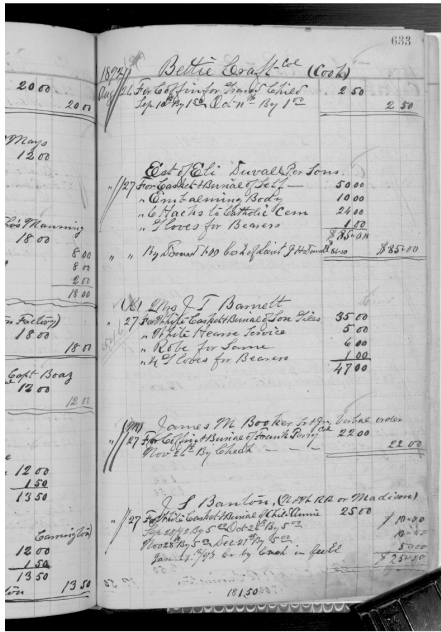 633
20 00
20 00
Mays
12 00
Manning
18 00
8 00
8 00
2 00
18 00
Factory)
18 00
18 00
Capt Boaz
12 00
12 00
12 00
1 50
13 50
Carrington
12 00
1 50
13 50
13 50
1892
Bettie Craft Col (Cook)
Aug 26 For Coffin for Grand Child 2 50
Sep 10th By 1 50 Oct 11th By 1 00 2 50
Est of Eli Duvall Per Sons
" 27 For Casket & Burial of Self 50 00
" Embalming Body 10 00
" 6 Hacks to Catholic Cem 24 00
" Gloves for Bearers 1 00
$ 85 00
" " By $85.00
Mrs J. T. Barnett
" 27 For White Casket & Burial of Son 35 00
" White Hearse Service 5 00
" Robe for Same 6 00
" 4 Gloves for Bearers 1 00
47 00
James M Booker Verbal order
" 27 For Coffin & Burial of Frank Perry Col 22 00
Nov 26th By Check 22 00
J. S. Banton, (N & W RR or Madison)
" 27 For White Casket & Burial of Child 25 00
By 5 00 Oct 28th By 5 00
Nov 28th By 5 00 Dec 21st By 5 00
by Cash in full 5 00
$ 25 00
181.50